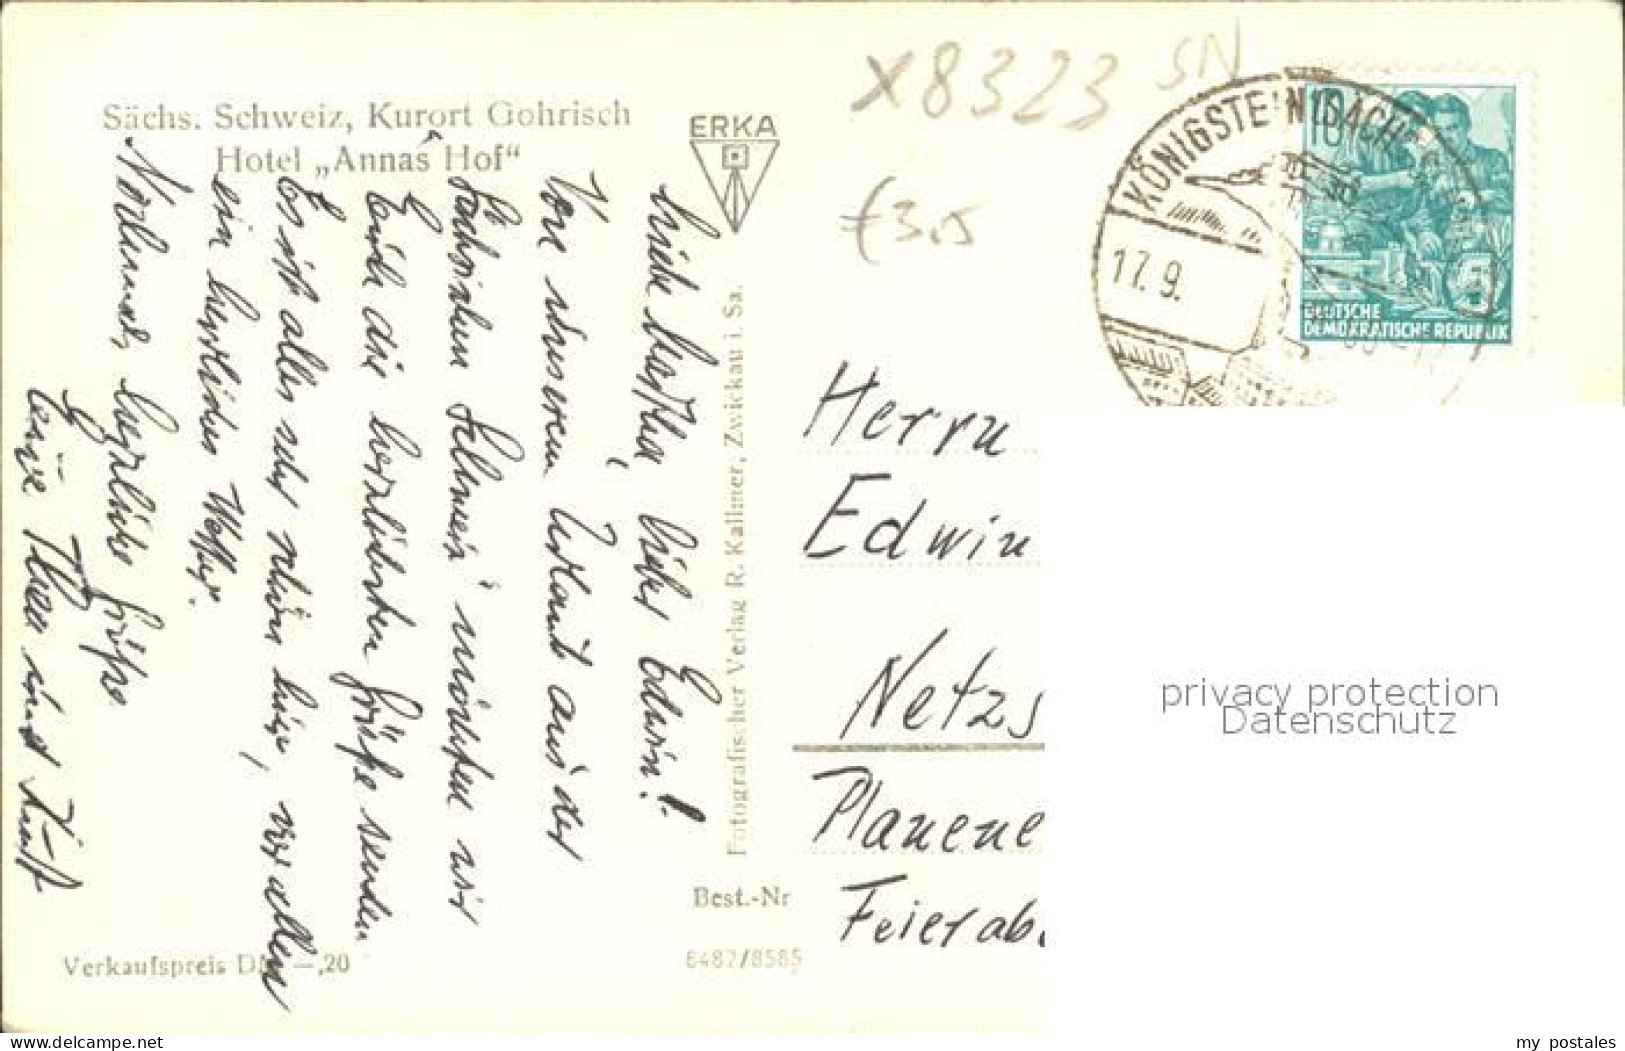 Sächs. Schweiz, Kurort Gohrisch
Hotel „Annas Hof“
ERKA
X8323 SN
€3.5
KÖNIGSTEIN (SÄCHS
17.9.
10
DEUTSCHE
DEMOKRATISCHE REPUBLIK
Liebe lieber Edwin!
Von unserem Urlaub aus der
Sächsischen Schweiz möchten wir
Euch die herzlichsten Grüße senden
Es ist alles sehr schön hier, vor allem
ein herrliches Wetter.
Nochmals herzliche Grüße
Eure und
Fotografischer Verlag R. Kallmer, Zwickau i. Sa.
Herrn
Edwin
Netzs
Planene
Feierab
Best.-Nr
6487/8585
Verkaufspreis DM —,20
privacy protection
Datenschutz
www.delcampe.net
my_postales